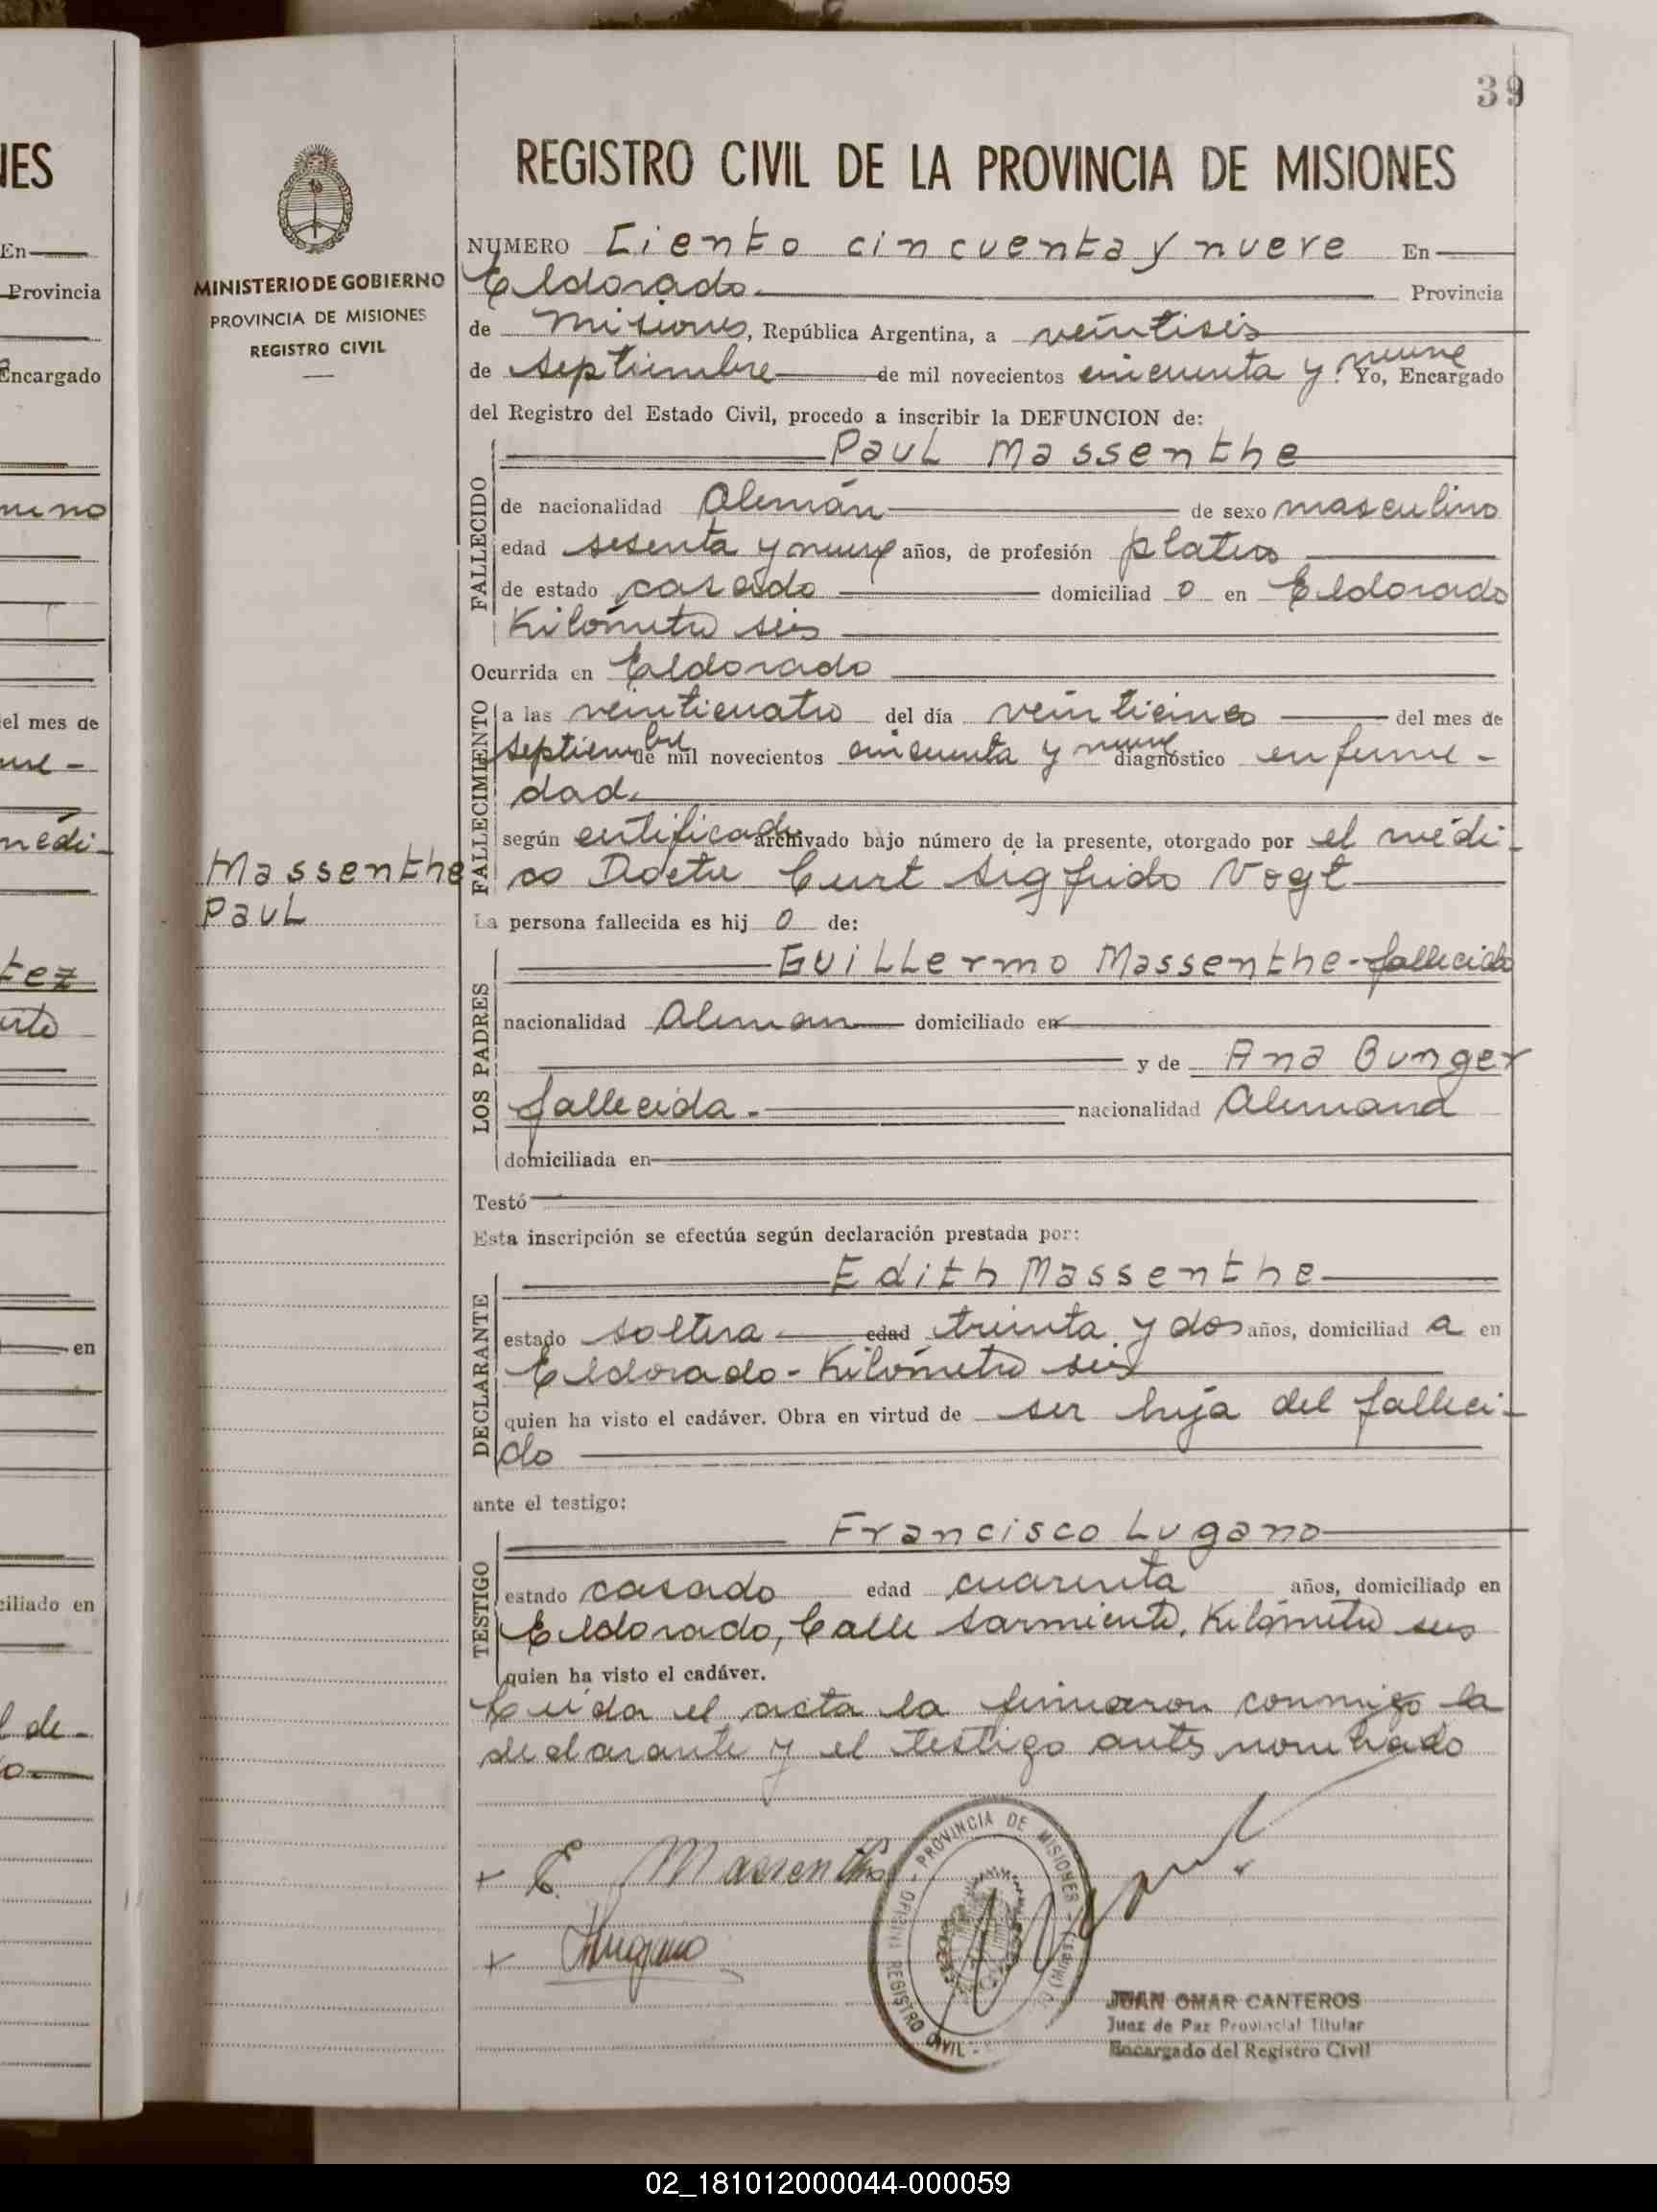 39
REGISTRO CIVIL DE LA PROVINCIA DE MISIONES
NUMERO Ciento cincuenta y nueve En
Eldorado. Provincia
de Misiones, República Argentina, a veintiseis
de septiembre de mil novecientos cincuenta y nueve Yo, Encargado
del Registro del Estado Civil, procedo a inscribir la DEFUNCION de:
Paul Massenthe
FALLECIDO
de nacionalidad Alemán de sexo masculino
edad sesenta y nueve años, de profesión
de estado casado domiciliad o en Eldorado
Kilómetro seis
Ocurrida en Eldorado
FALLECIMIENTO
a las veinticuatro del día veinticinco del mes de
septiembre de mil novecientos cincuenta y nueve diagnóstico enferme-
dad.
según certificado archivado bajo número de la presente, otorgado por el médi-
co Doctor Curt Sigfrido Vogt
La persona fallecida es hij o de:
LOS PADRES
Guillermo Massenthe-fallecido
nacionalidad Aleman domiciliado en
y de Ana Bunger
fallecida.- nacionalidad Alemana
domiciliada en
Testó
Esta inscripción se efectúa según declaración prestada por:
DECLARANTE
Edith Massenthe
estado soltera edad treinta y dos años, domiciliad a en
Eldorado-Kilómetro seis
quien ha visto el cadáver. Obra en virtud de ser hija del falleci-
do
ante el testigo:
TESTIGO
Francisco Lugano
estado casado edad cuarenta años, domiciliado en
Eldorado, Calle Sarmiento, Kilómetro seis
quien ha visto el cadáver.
Leída el acta la firmaron conmigo la
declarante y el testigo antes nombrado
E. Massenthe
Lugano
REGISTRO CIVIL - PROVINCIA DE MISIONES
JUAN OMAR CANTEROS
Juez de Paz Provincial Titular
Encargado del Registro Civil
MINISTERIO DE GOBIERNO
PROVINCIA DE MISIONES
REGISTRO CIVIL
Massenthe
Paul
NES
En
Provincia
Encargado
el mes de
médi-
tez
en
ciliado en
l de-
02_181012000044-000059